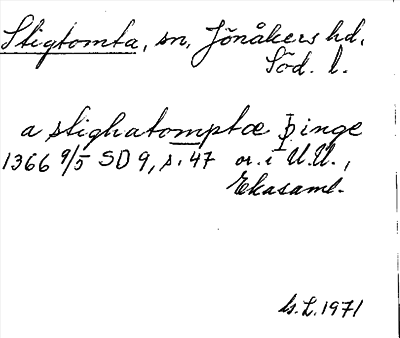 Stigtomta, sn, Jönåkers hd.
Söd. l.
a stighatomptæ þinge
1366 9/5 SD 9, s. 47 or. i U.U.,
Ekasaml.
G.L. 1971